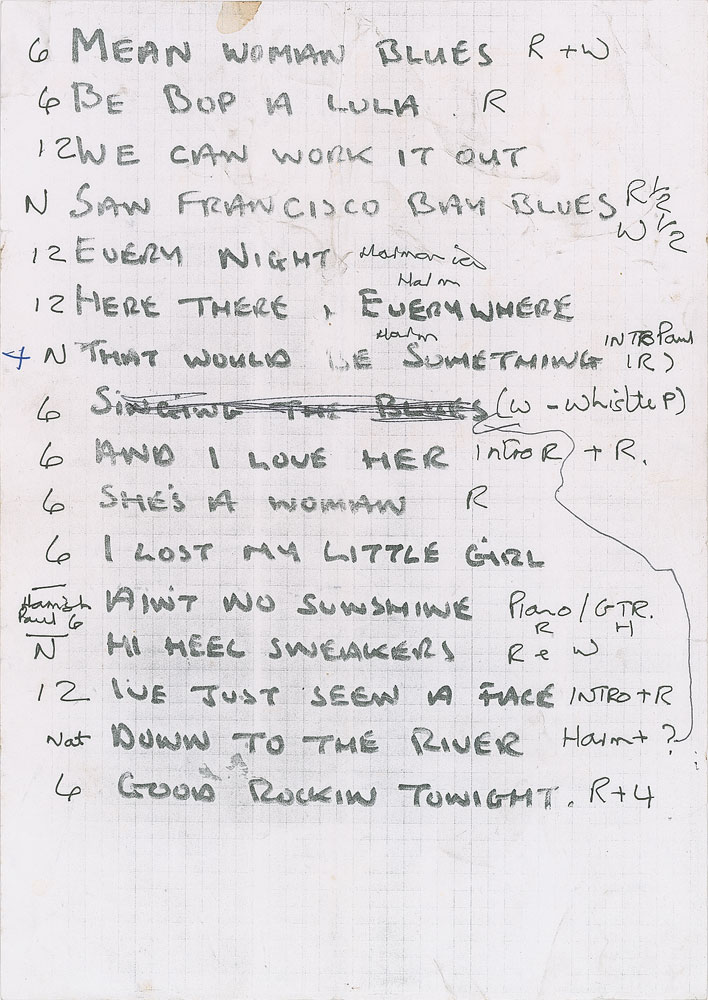 6 MEAN WOMAN BLUES R + W
6 BE BOP A LULA R
12 WE CAN WORK IT OUT
N SAN FRANCISCO BAY BLUES R 1/2
W 1/2
12 EVERY NIGHT Harmonies
Harm
12 HERE THERE , EVERYWHERE
Harm
INTRO Paul
+ N THAT WOULD BE SOMETHING (R)
6 SINGING THE BLUES (W - Whistle P)
6 AND I LOVE HER intro R + R.
6 SHE'S A WOMAN R
6 I LOST MY LITTLE GIRL
Hamish
Paul 6 AIN'T NO SUNSHINE Piano / GTR.
R H
N HI HEEL SNEAKERS R e W
12 I'VE JUST SEEN A FACE INTRO + R
Nat DOWN TO THE RIVER Harm + ?
6 GOOD ROCKIN TONIGHT. R + 4